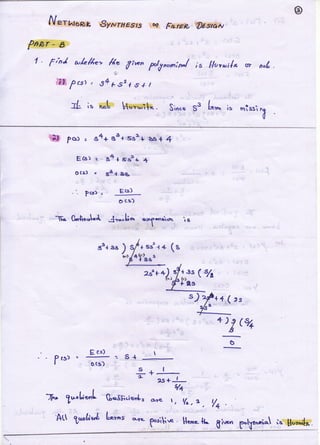 NETWORK SYNTHESIS & FILTER DESIGN
PART - B
1. Find whether the given polynomial is Hurwitz or not.
i) P(s) = s⁴ + s² + s + 1
It is not Hurwitz. Since s³ term is missing
ii) P(s) = s⁴ + s³ + 5s² + 3s + 4
E(s) = s⁴ + 5s² + 4
O(s) = s³ + 3s
∴ P(s) = E(s)
O(s)
The Continued fraction expansion is
s³+3s ) s⁴+5s²+4 (s
s⁴+3s²
2s²+4 ) s³+3s ( s/2
s³+2s
s ) 2s²+4 ( 2s
2s²
4 ) s ( s/4
s
0
∴ P(s) = E(s)
O(s) = s + 1
s
2 + 1
2s + 1
s/4
The quotient Coefficients are 1, ½, 2, ¼.
All quotient terms are positive. Hence the given polynomial is Hurwitz.